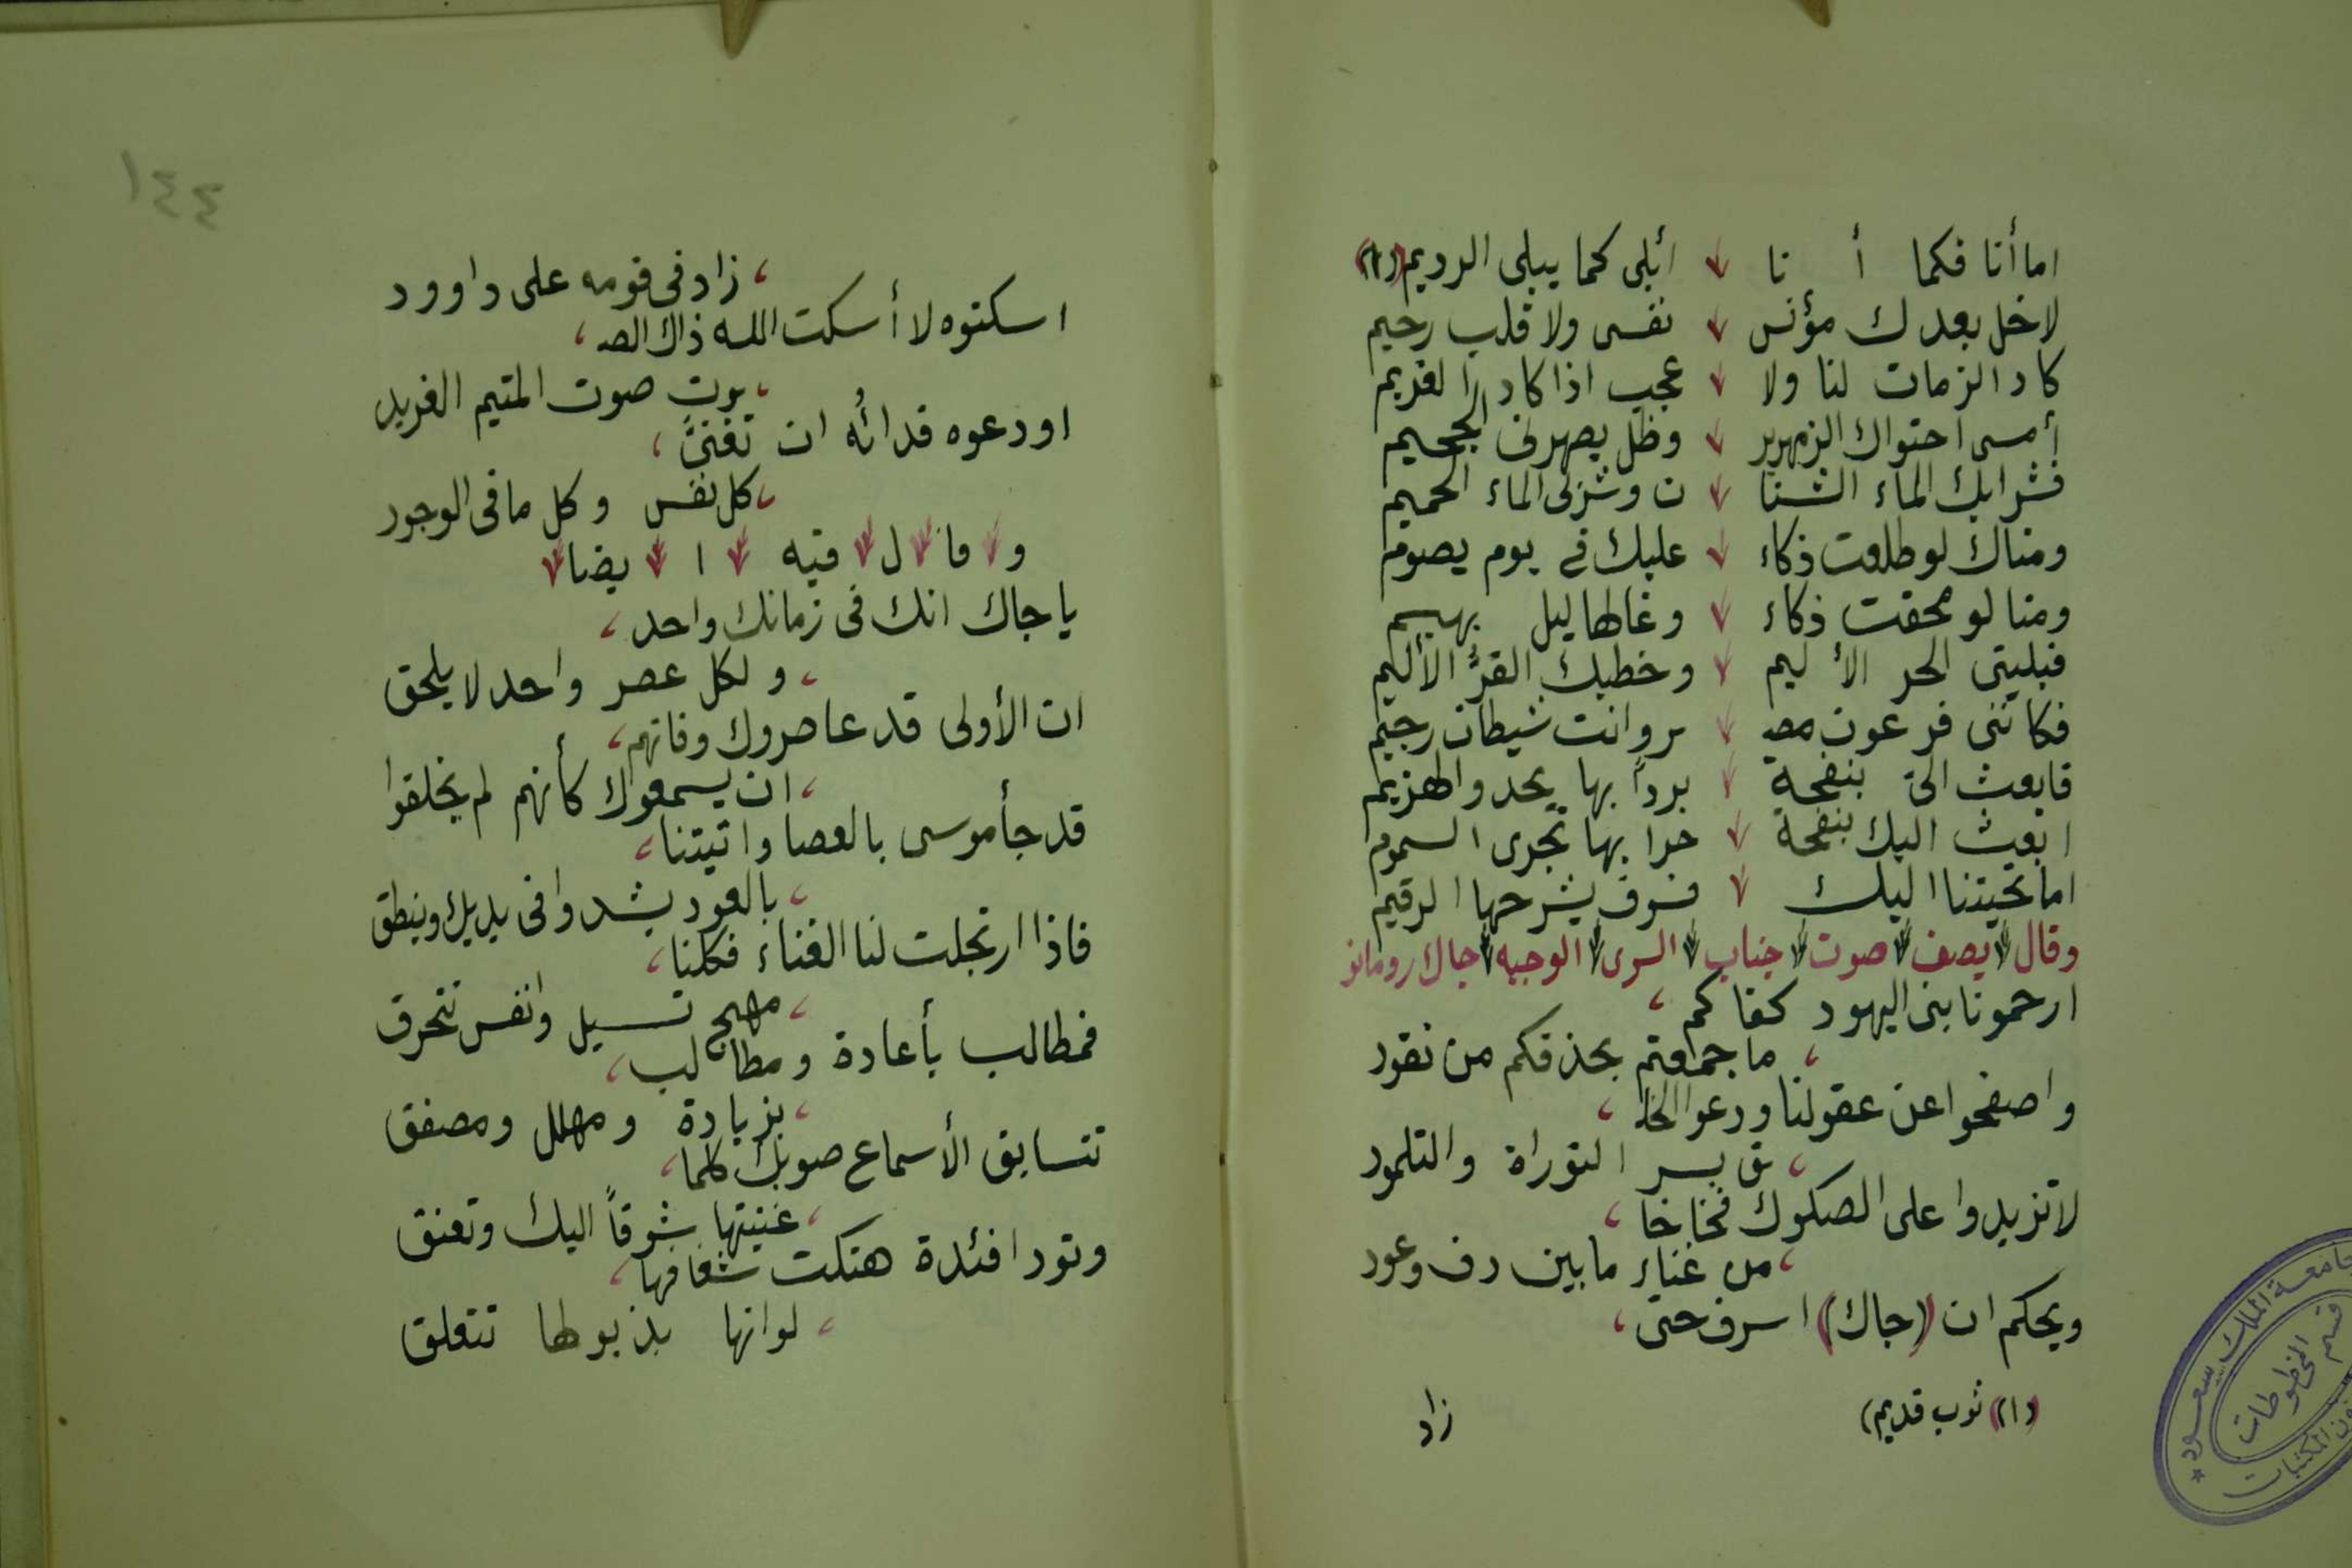 اما أنا فكما أ نا أبلى كما يبلى الرديم (١)
لا خل بعدك مؤنس نفسى ولا قلب رحيم
كاد الزمان لنا ولا عجب اذا كاد الغريم
أمسى احتواك الزمهرير وظل يصهرنى الجحيم
فشرابك الماء الشنا ن وشربى الماء الحميم
ومناك لو طلعت ذكاء عليك فى يوم يصوم
ومنا لو محقت ذكاء وغالها ليل بهيم
فبليتى الحر الأليم وخطبك القرُّ الأليم
فكأننى فرعون مصـ ـر وانت شيطان رجيم
فابعث الىّ بنفحة برداً بها يحدو الهزيم
ابعث اليك بنفحة حرا بها تجرى السموم
اما تحيتنا اليك فسوف يشرحها الرقيم
وقال يصف صوت جناب السرى الوجيه جاك رومانو
ارحمونا بنى اليهود كفاكم،
، ما جمعتم بحذقكم من نقود
واصفحوا عن عقولنا ودعوا الخلـ،
، ـق بسر التوراة والتلمود
لا تزيدوا على الصكوك فخاخا،
، من غناء ما بين دف وعود
ويحكم ان (جاك) اسرف حتى،
(١) ثوب قديم)
زاد
جامعة الملك سعود
قسم المخطوطات
١٤٤
، زاد فى قومه على داوود
اسكتوه لا أسكت الله ذاك الصـ،
، ـوت صوت المتيم الغريد
او دعوه فدائُه ان تغنىَّ،
، كل نفس وكل ما فى الوجود
و قا ل فيه ا يضا
يا جاك انك فى زمانك واحد،
، ولكل عصر واحد لا يلحق
ان الأولى قد عاصروك وفاتهم،
، ان يسمعوك كأنهم لم يخلقوا
قد جأ موسى بالعصا واتيتنا،
، بالعود يشدوا فى يديك وينطق
فاذا ارتجلت لنا الغناء فكلنا،
، مهج تسيل وانفس تتحرق
فمطالب بأعادة ومطالب،
، بزيادة ومهلل ومصفق
تتسابق الأسماع صوبك كلما،
، غنيتها شوقاً اليك وتعنق
وتود افئدة هتكت شغافها،
، لو انها بذيولها تتعلق